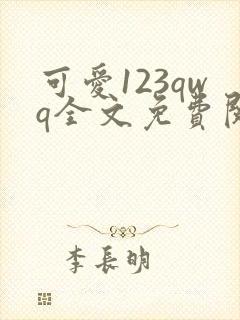 可愛123qw
q全文免費閱
李長明